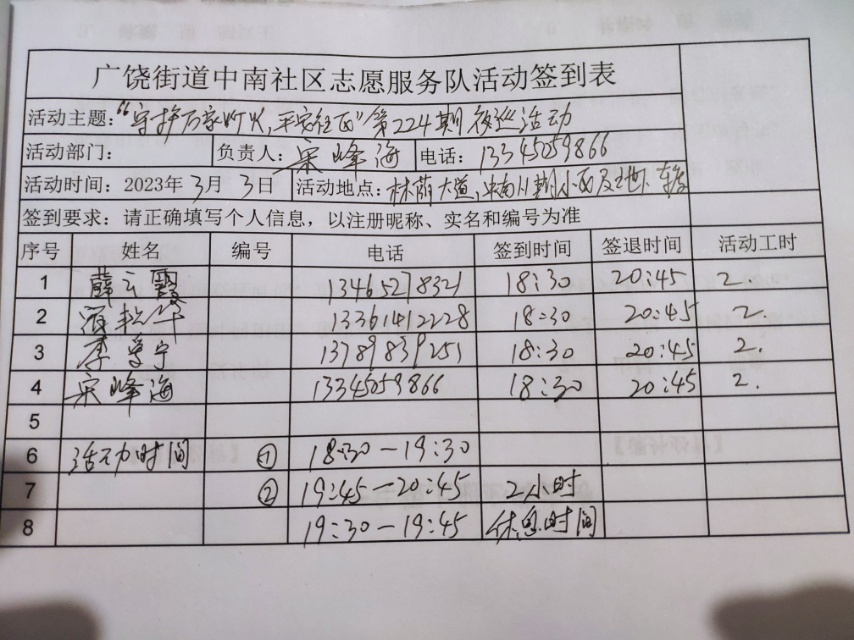 广饶街道中南社区志愿服务队活动签到表
活动主题：“守护万家灯火，平安社区”第224期夜巡活动
活动部门： 负责人：宋峰海 电话：13345059866
活动时间：2023年3月3日 活动地点：林荫大道，中南小区及地下车
签到要求：请正确填写个人信息，以注册昵称、实名和编号为准
序号 姓名 编号 电话 签到时间 签退时间 活动工时
1 薛云霞 13465278321 18:30 20:45 2.
2 13361412228 18:30 20:45 2.
3 李学宁 13789839251 18:30 20:45 2.
4 宋峰海 13345059866 18:30 20:45 2.
5
6 活动时间 ① 18:30-19:30
7 ② 19:45-20:45 2小时
8 19:30-19:45 休息时间